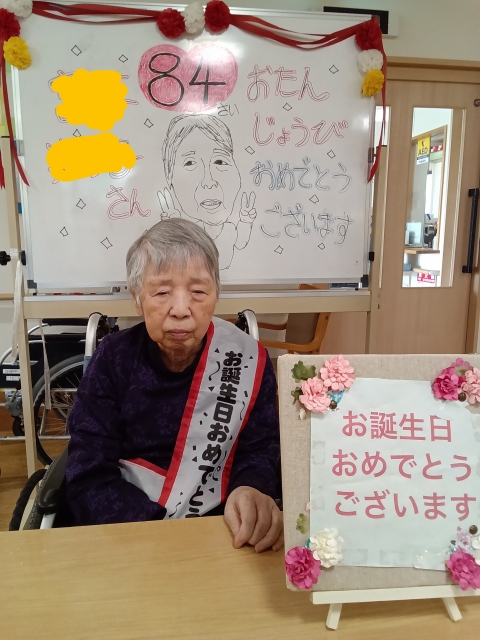 84
さい
おたん
じょうび
おめでとう
ございます
さん
お誕生日おめでとう
お誕生日
おめでとう
ございます
AED